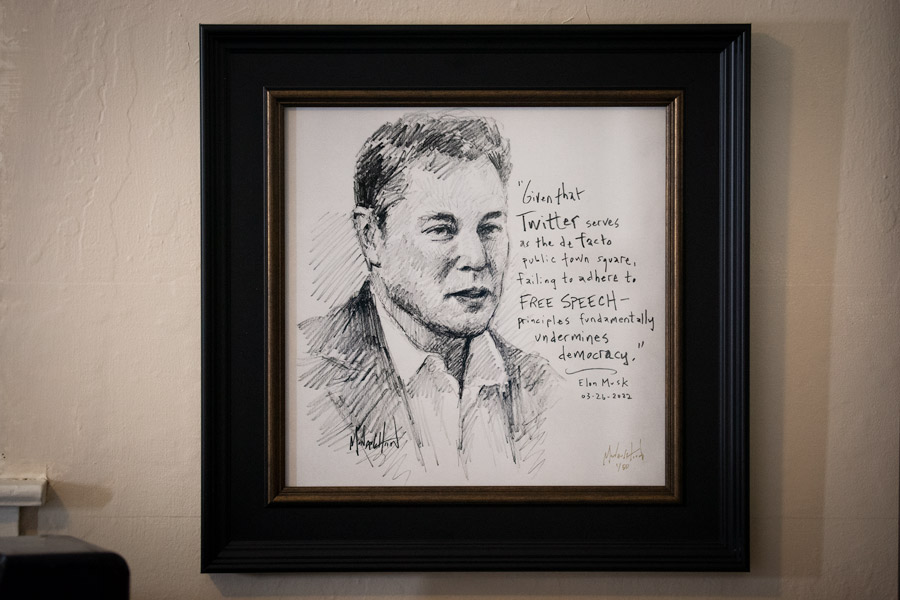 "Given that
Twitter serves
as the de facto
public town square,
failing to adhere to
FREE SPEECH-
principles fundamentally
undermines
democracy."
Elon Musk
03-26-2022